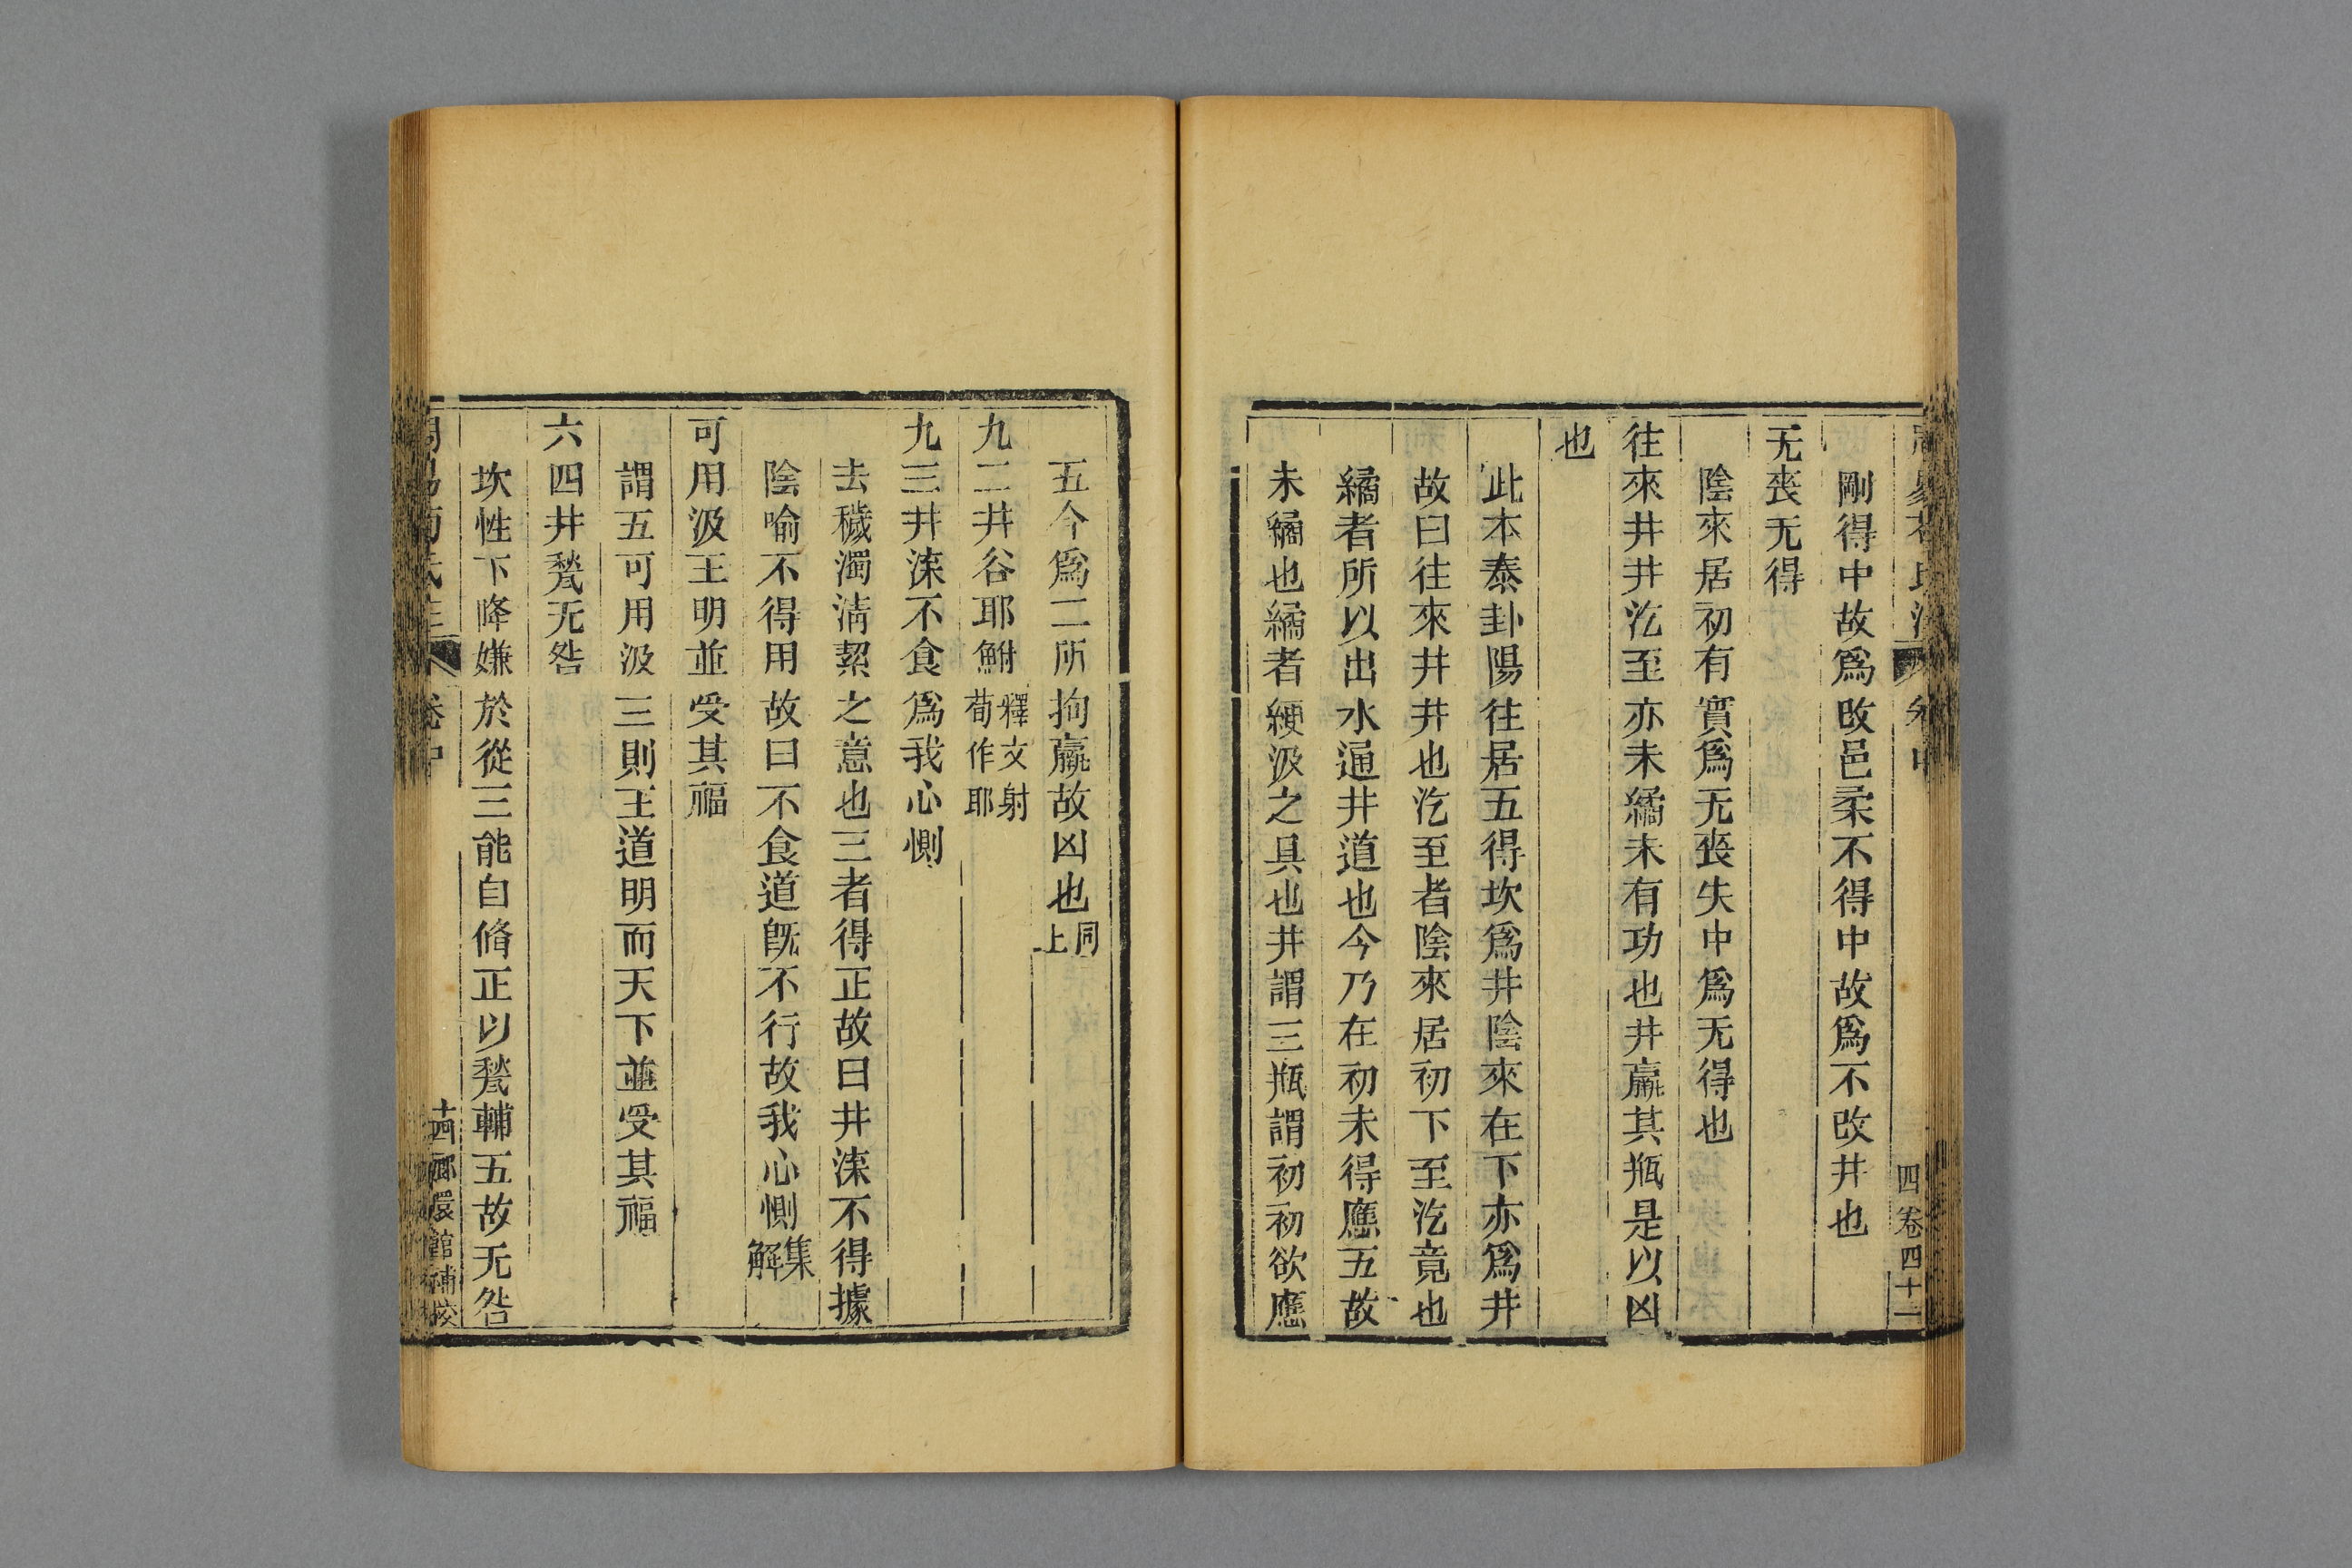 剛得中故爲改邑柔不得中故爲不改井也
无喪无得
陰來居初有實爲无喪失中爲无得也
往來井井汔至亦未繘未有功也井羸其瓶是以凶
也
此本泰卦陽往居五得坎爲井陰來在下亦爲井
故曰往來井井也汔至者陰來居初下至汔竟也
繘者所以出水通井道也今乃在初未得應五故
未繘也繘者綆汲之具也井謂三瓶謂初初欲應
四 卷四十一
五今爲二所拘羸故凶也同上
九二井谷耶鮒釋文射荀作耶
九三井渫不食爲我心惻
去穢濁淸絜之意也三者得正故曰井渫不得據
陰喻不得用故曰不食道旣不行故我心惻集解
可用汲王明並受其福
謂五可用汲三則王道明而天下並受其福
六四井甃无咎
坎性下降嫌於從三能自脩正以甃輔五故无咎
卷中
嫏嬛館補校